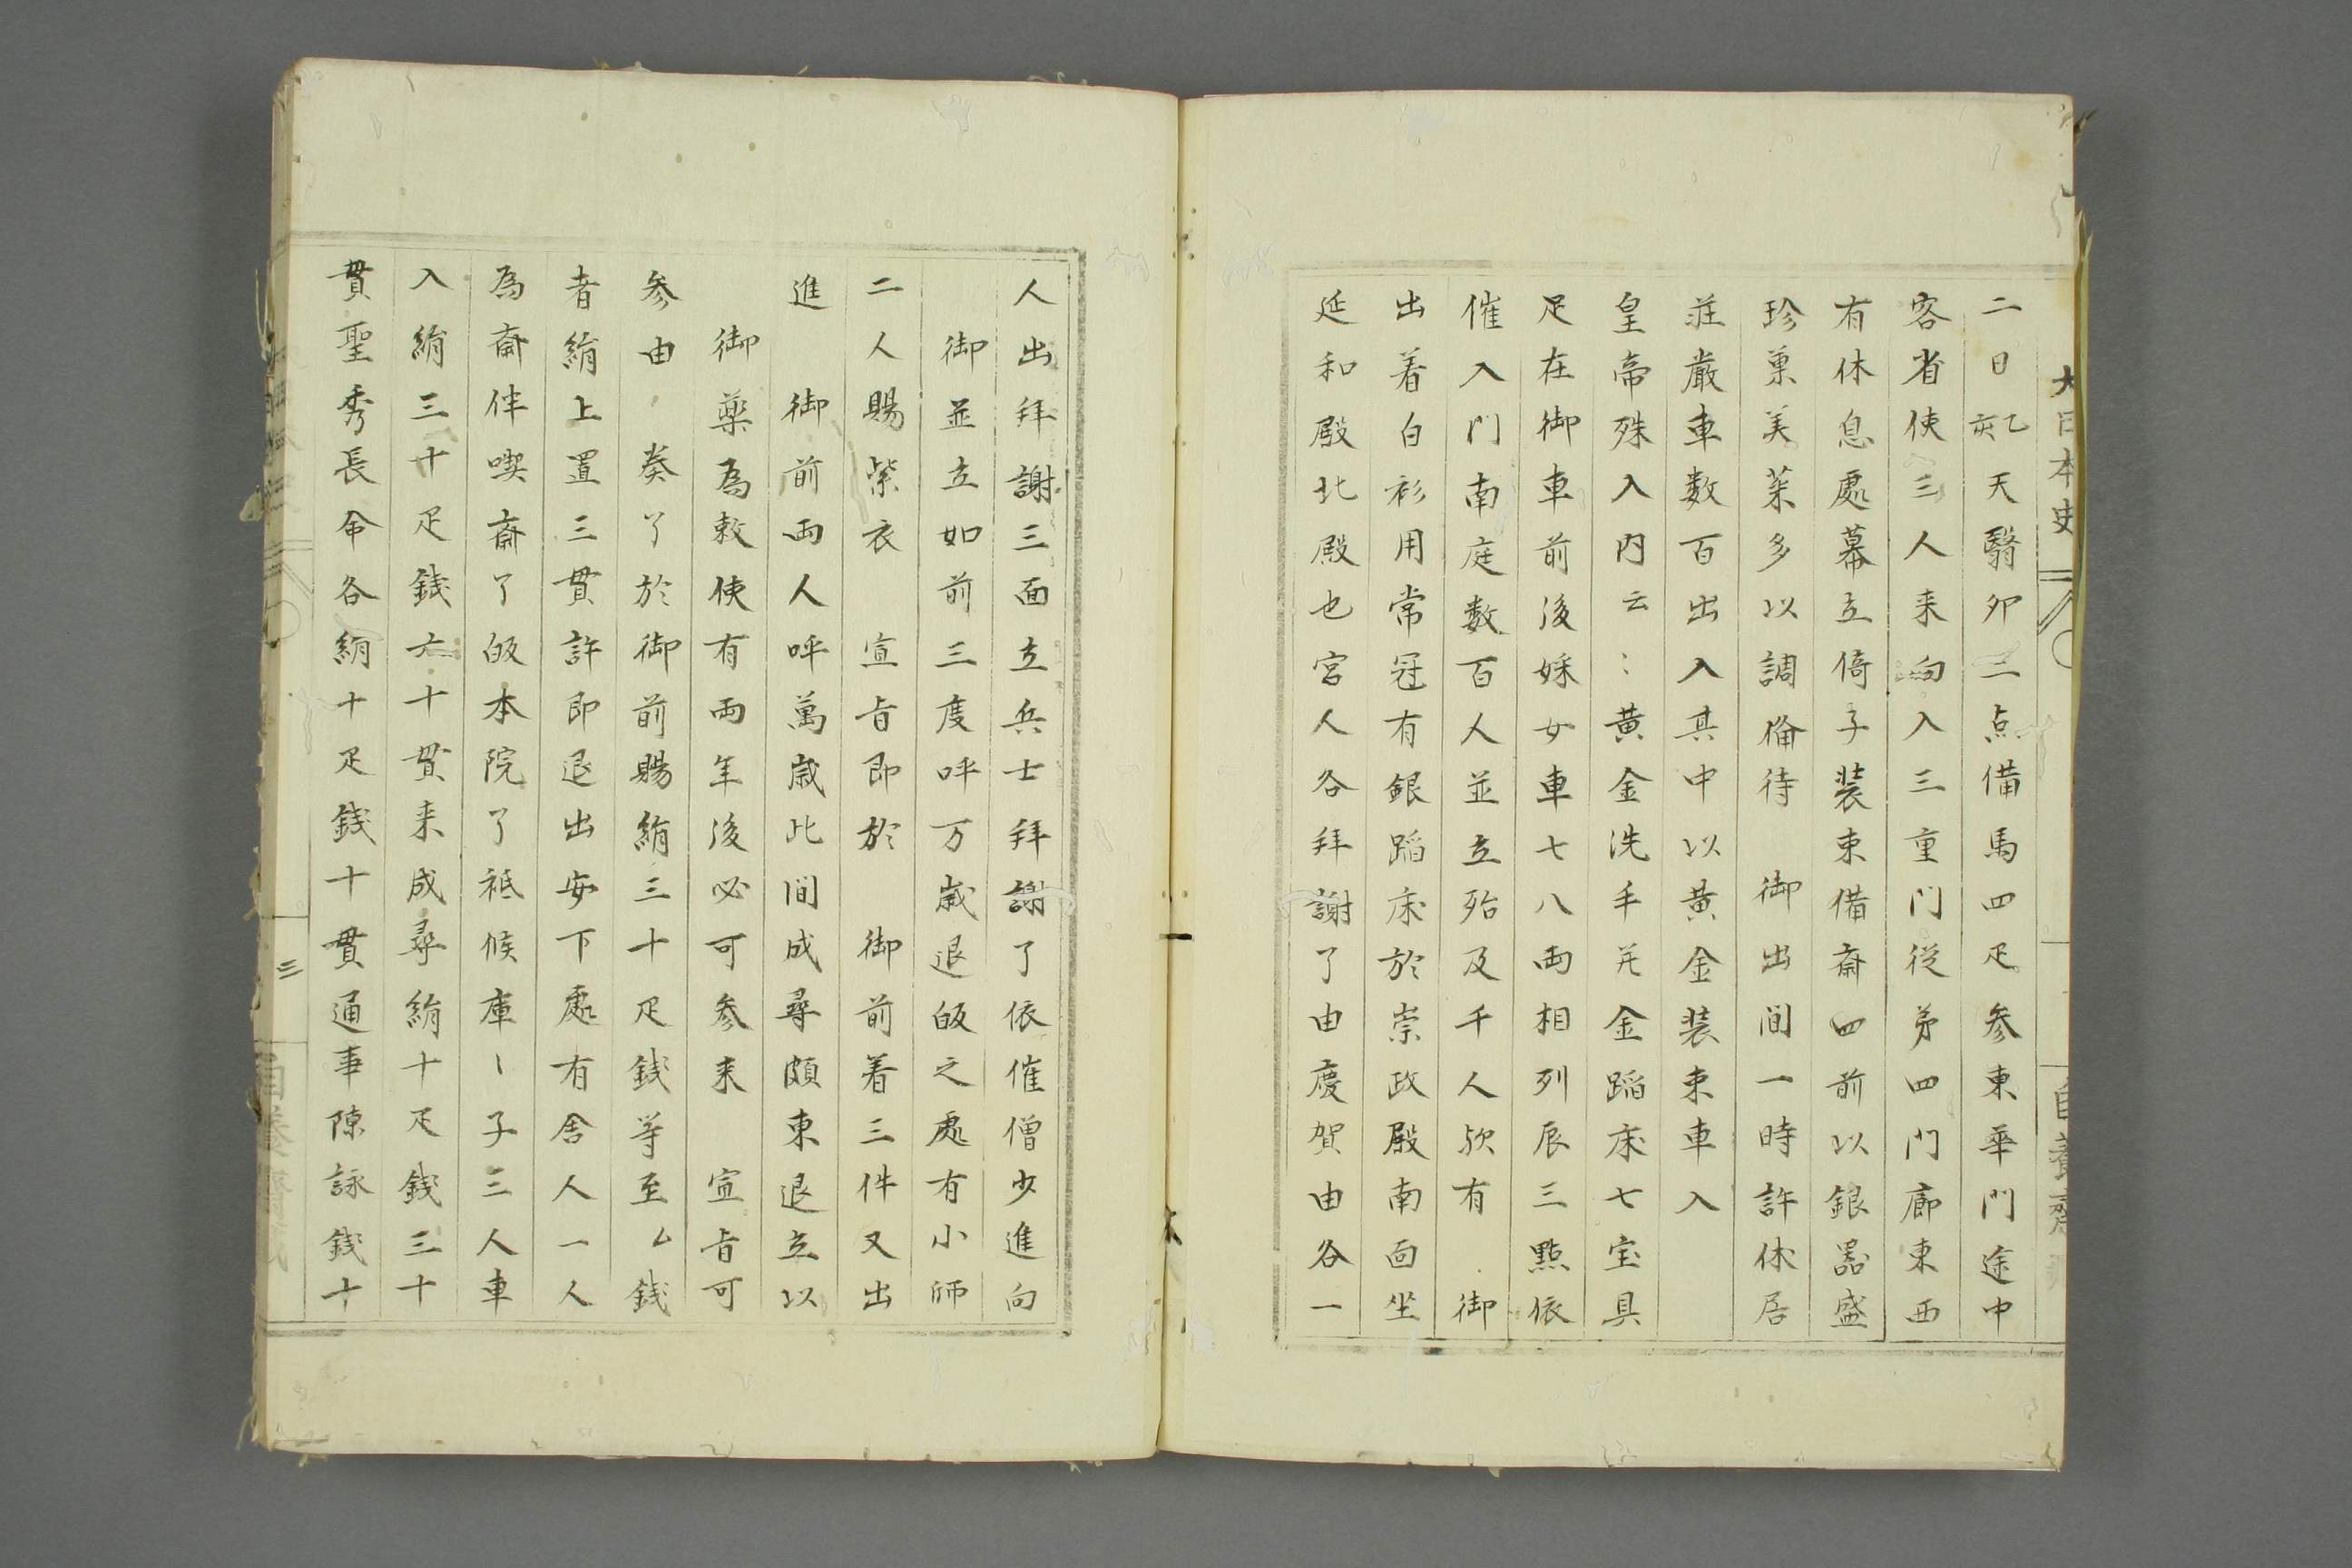 大日本史
二日乙亥天翳卯三点備馬四疋参東華門途中
客省使三人来向入三重門従弟四門廊東西
有休息處幕立倚子装束備斎四前以銀器盛
珍菓美菜多以調偹待　御出間一時許休居
荘厳車数百出入其中以黄金装束車入
皇帝殊入内云〻黄金洗手并金蹈床七宝具
足在御車前後婇女車七八両相列辰三點依
催入門南庭数百人並立殆及千人欤有　御
出着白衫用常冠有銀蹈床於崇政殿南面坐
延和殿北殿也宮人各拜謝了由慶賀由各一
人出拜謝三面立兵士拜謝了依催僧少進向
御並立如前三度呼万歳退皈之處有小師
二人賜紫衣　宣旨即於　御前着三件又出
進　御前両人呼萬歳此間成尋頗東退立以
御薬為敕使有両年後必可参来　宣旨可
参由　奏了於御前賜絹三十疋錢等至〻錢
者絹上置三貫許即退出安下處有舍人一人
為斎伴喫斎了皈本院了祗候庫〻子三人車
入絹三十疋錢六十貫来成尋絹十疋錢三十
貫聖秀長命各絹十疋錢十貫通事陳詠錢十
三